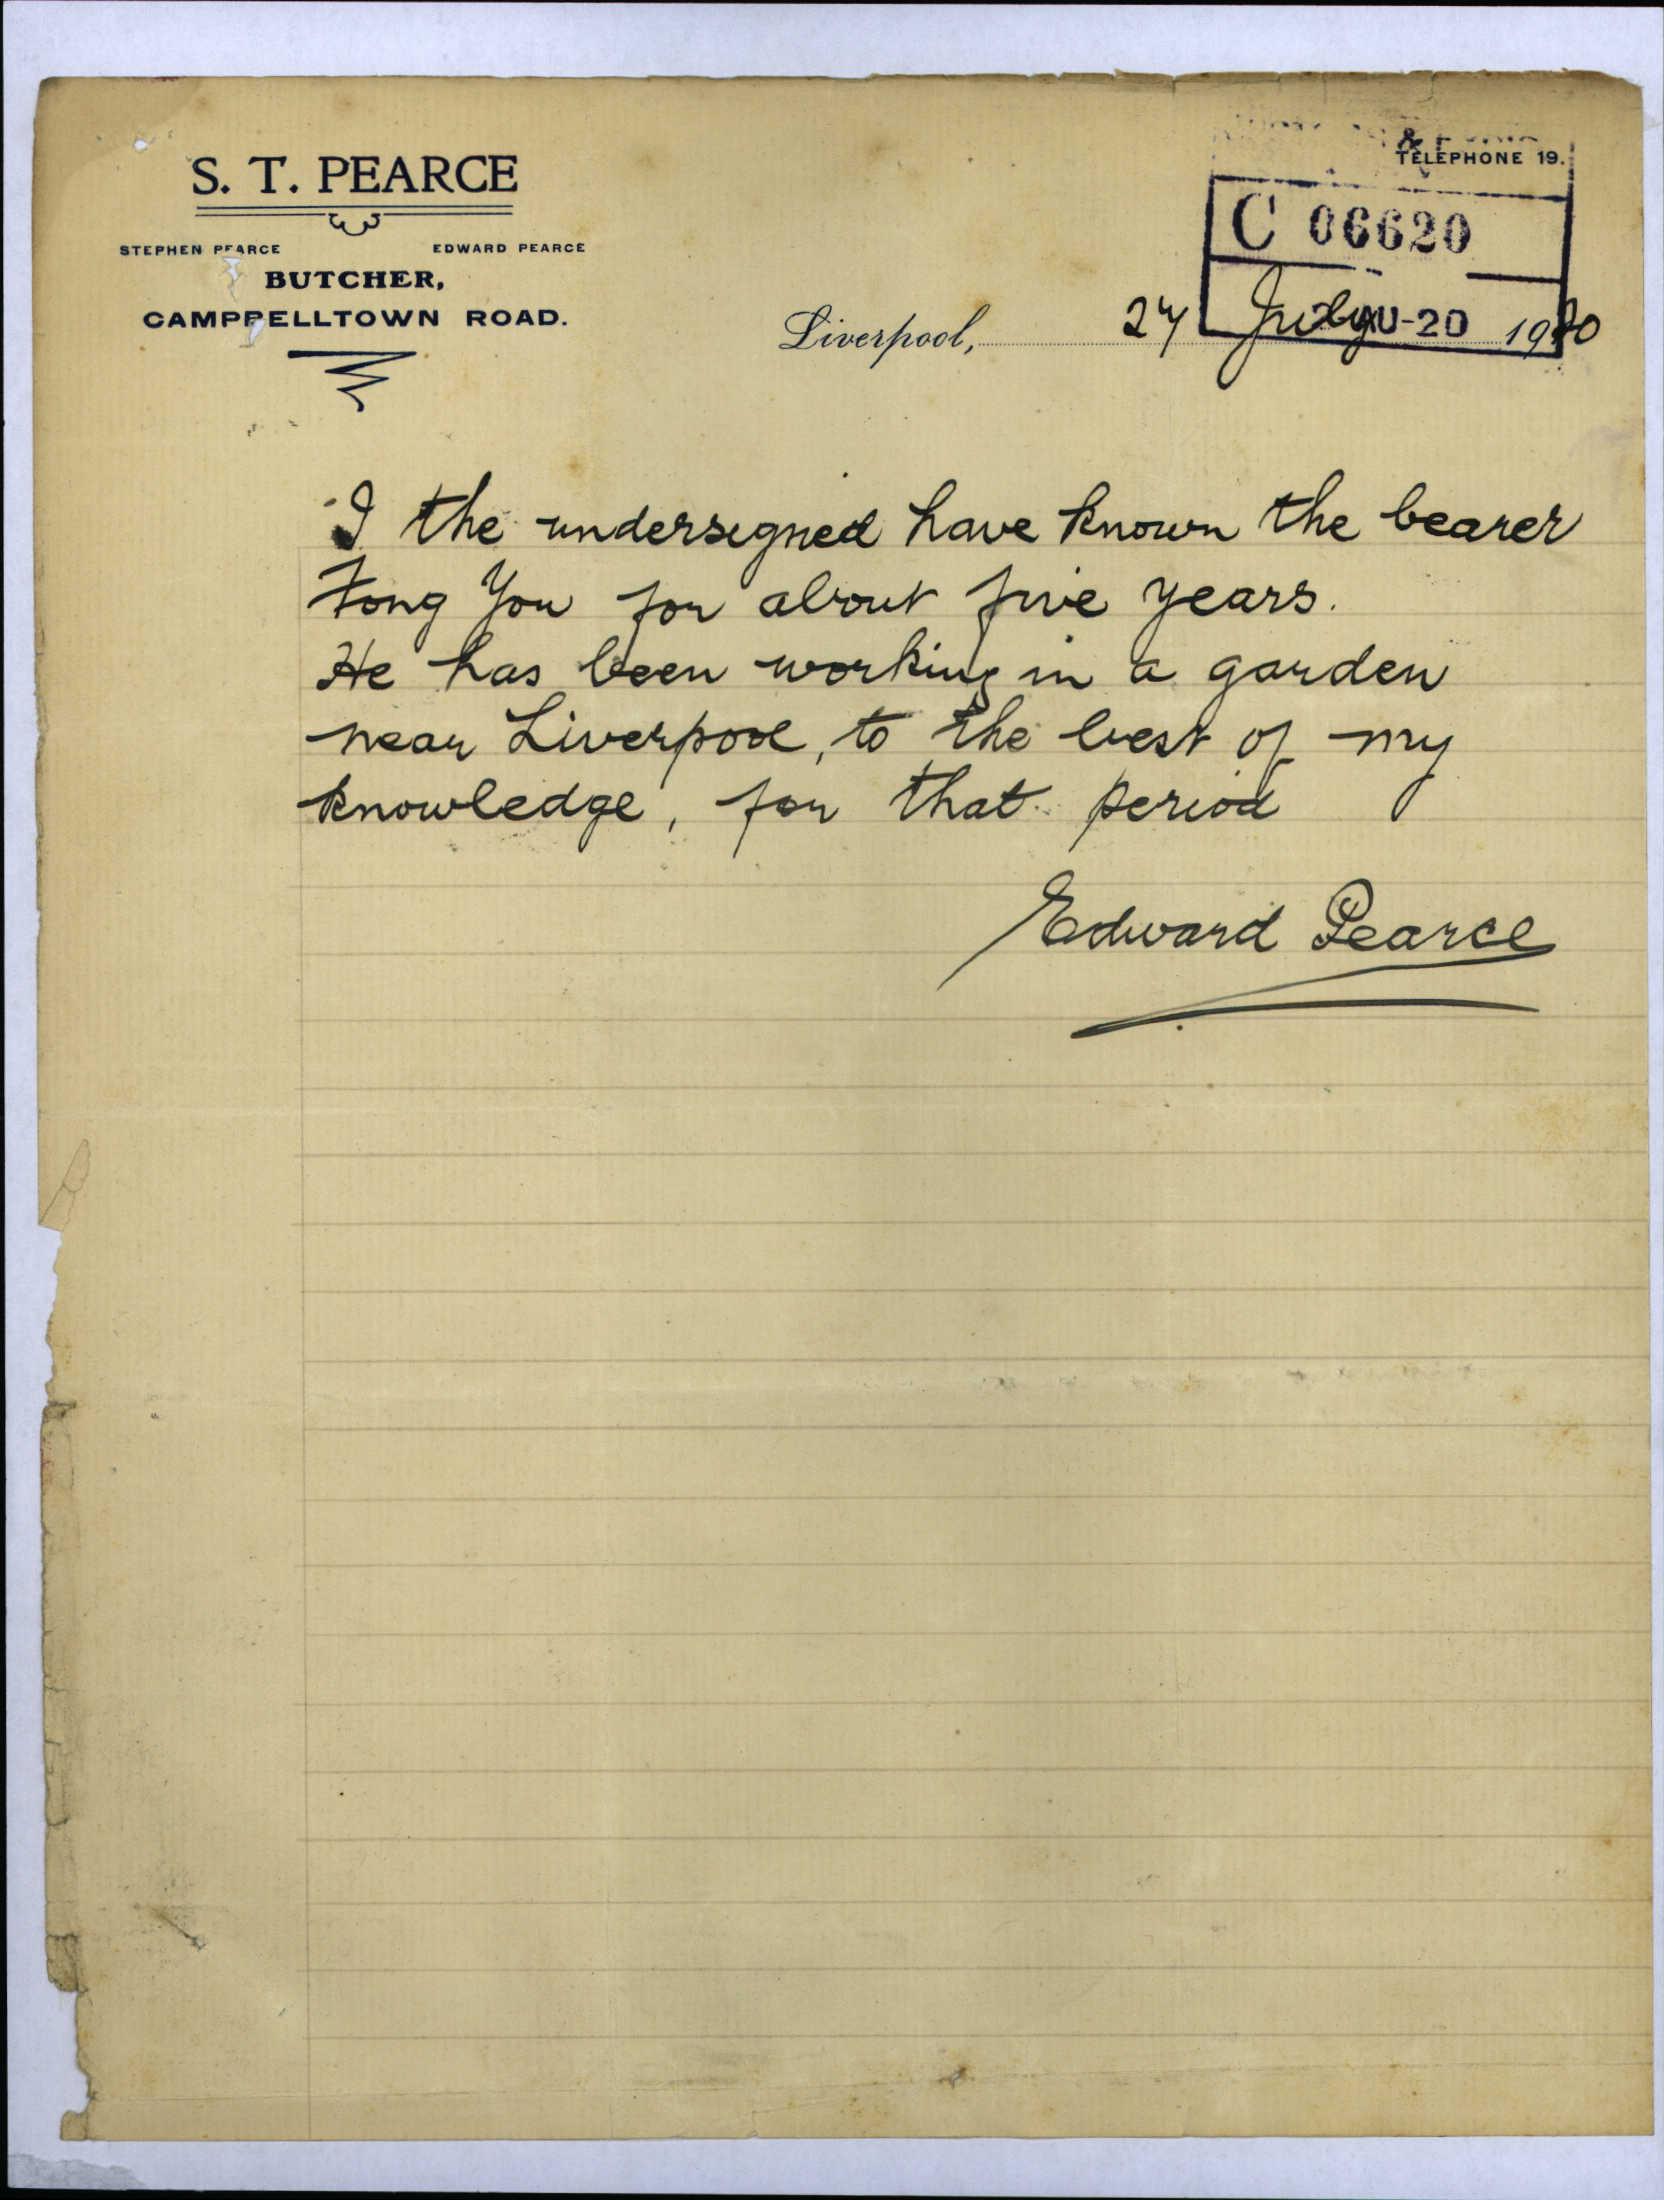 S. T. PEARCE
STEPHEN PEARCE EDWARD PEARCE
BUTCHER,
CAMPBELLTOWN ROAD.
& TELEPHONE 19.
C 06620
Liverpool, 27 July 1920
U-20
I the undersigned have known the bearer
Fong You for about five years.
He has been working in a garden
near Liverpool, to the best of my
knowledge, for that period
Edward Pearce